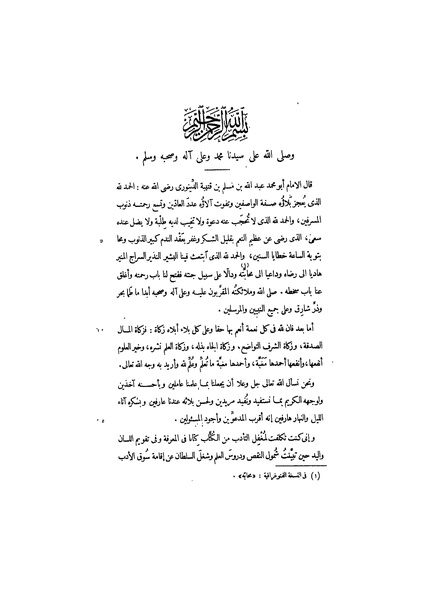 بسم الله الرحمن الرحيم
وصلى الله على سيدنا محمد وعلى آله وصحبه وسلم .
قال الامام أبو محمد عبد الله بن مسلم بن قتيبة الدِّينورى رضى الله عنه : الحمد لله
الذى يُعجز بَلاؤه صفة الواصفين وتفوت آلاؤه عددَ العادّين وتسع رحمته ذنوب
المسرفين، والحمد لله الذى لا تُحجَب عنه دعوة ولا تخيب لديه طَلِبة ولا يضل عنده
سعىٌ، الذى رضى عن عظيم النعم بقليل الشكر وغفر بعَقْد الندم كبير الذنوب ومحا
٥
بتوبة الساعة خطايا السنين، والحمد لله الذى آبتعث فينا البشير النذير السراج المنير
هاديا الى رضاه وداعيا الى محابّه(١) ودالّا على سبيل جنته ففتح لنا باب رحمته وأغلق
عنا باب سخطه . صلى الله وملائكتُه المقرّبون عليه وعلى آله وصحبه أبدا ما طَما بحر
وذرّ شارق وعلى جميع النبيين والمرسلين .
أما بعد فان لله فى كل نعمة أنعم بها حقا وعلى كل بلاء أبلاه زكاة : فزكاة المال
١٠
الصدقة، وزكاة الشرف التواضع، وزكاة الجاه بذله، وزكاة العلم نشره، وخير العلوم
أنفعها، وأنفعها أحمدها مَغَبّة، وأحمدها مغبّة ما تُعلِّم وعُلِّم لله وأريد به وجه الله تعالى.
ونحن نسأل الله تعالى جل وعلا أن يجعلنا بما علمنا عاملين وبأحسنه آخذين
ولوجهه الكريم بما نستفيد ونُفيد مريدين ولحسن بلائه عندنا عارفين وبشكره آناء
الليل والنهار هارفين إنه أقرب المدعوّين وأجود المسئولين .
١٥
وإنى كنت تكلفت لمُغْفِل التأدب من الكُتّاب كتابا فى المعرفة وفى تقويم اللسان
واليد حين تبيَّنتُ شمول النقص ودروس العلم وشغل السلطان عن إقامة سُوق الأدب
(١) فى النسخة الفتوغرافية :